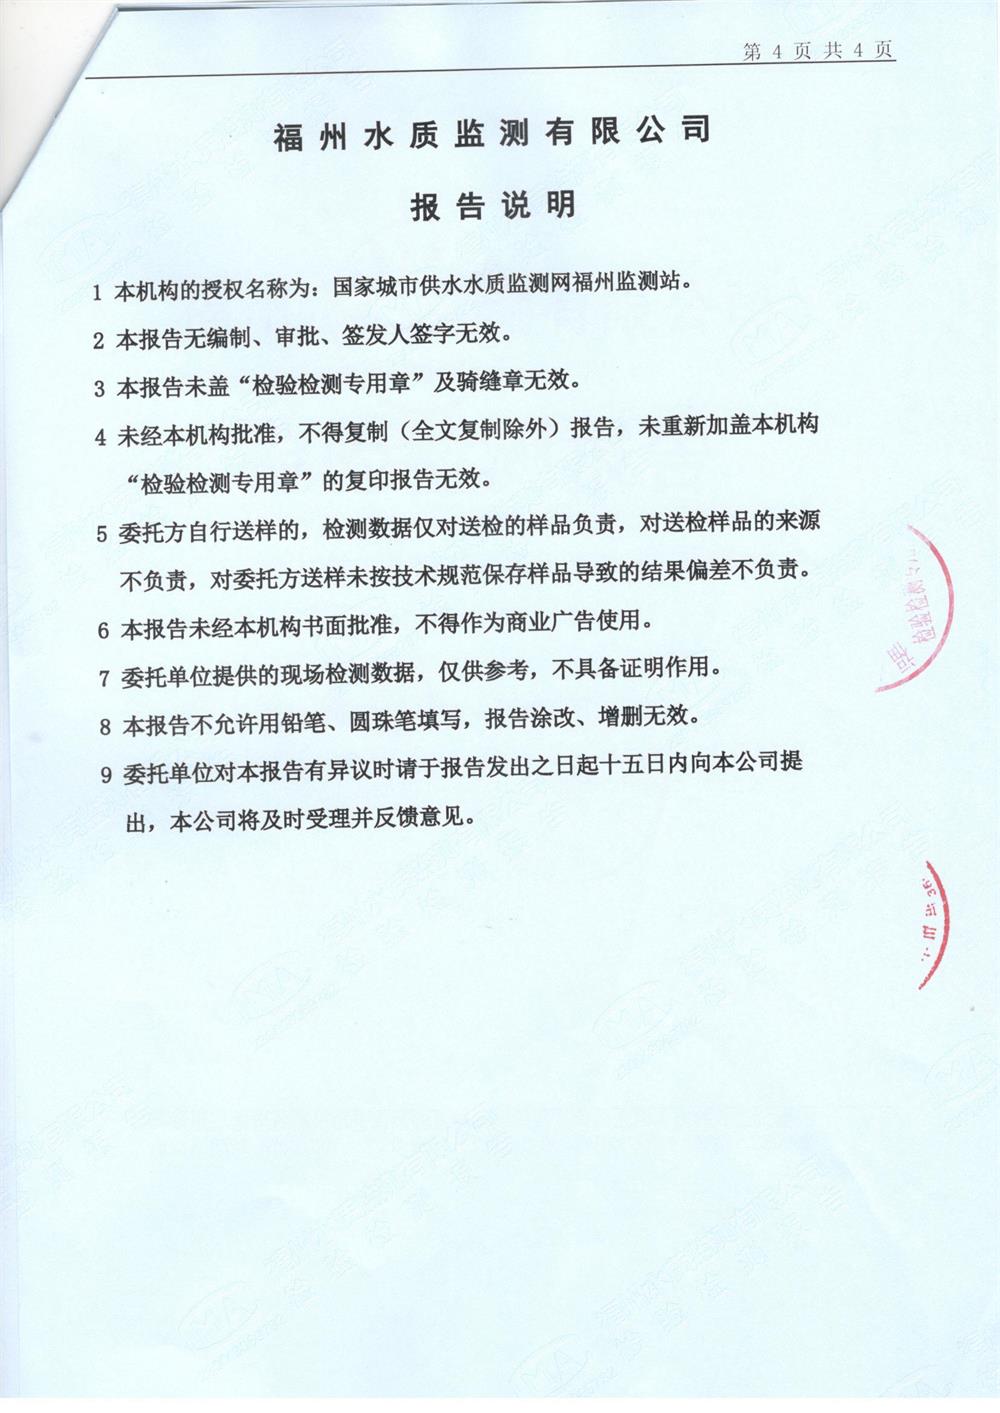 第 4 页 共 4 页
福州水质监测有限公司
报告说明
1 本机构的授权名称为：国家城市供水水质监测网福州监测站。
2 本报告无编制、审批、签发人签字无效。
3 本报告未盖“检验检测专用章”及骑缝章无效。
4 未经本机构批准，不得复制（全文复制除外）报告，未重新加盖本机构
“检验检测专用章”的复印报告无效。
5 委托方自行送样的，检测数据仅对送检的样品负责，对送检样品的来源
不负责，对委托方送样未按技术规范保存样品导致的结果偏差不负责。
6 本报告未经本机构书面批准，不得作为商业广告使用。
7 委托单位提供的现场检测数据，仅供参考，不具备证明作用。
8 本报告不允许用铅笔、圆珠笔填写，报告涂改、增删无效。
9 委托单位对本报告有异议时请于报告发出之日起十五日内向本公司提
出，本公司将及时受理并反馈意见。
检验检测专
福